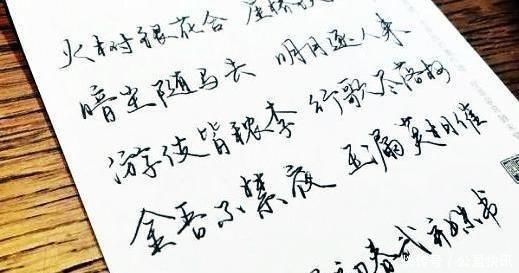 火树银花合 星桥
暗尘随马去 明月逐人来
游伎皆秾李 行歌尽落梅
金吾不禁夜 玉漏莫相催
春武
书